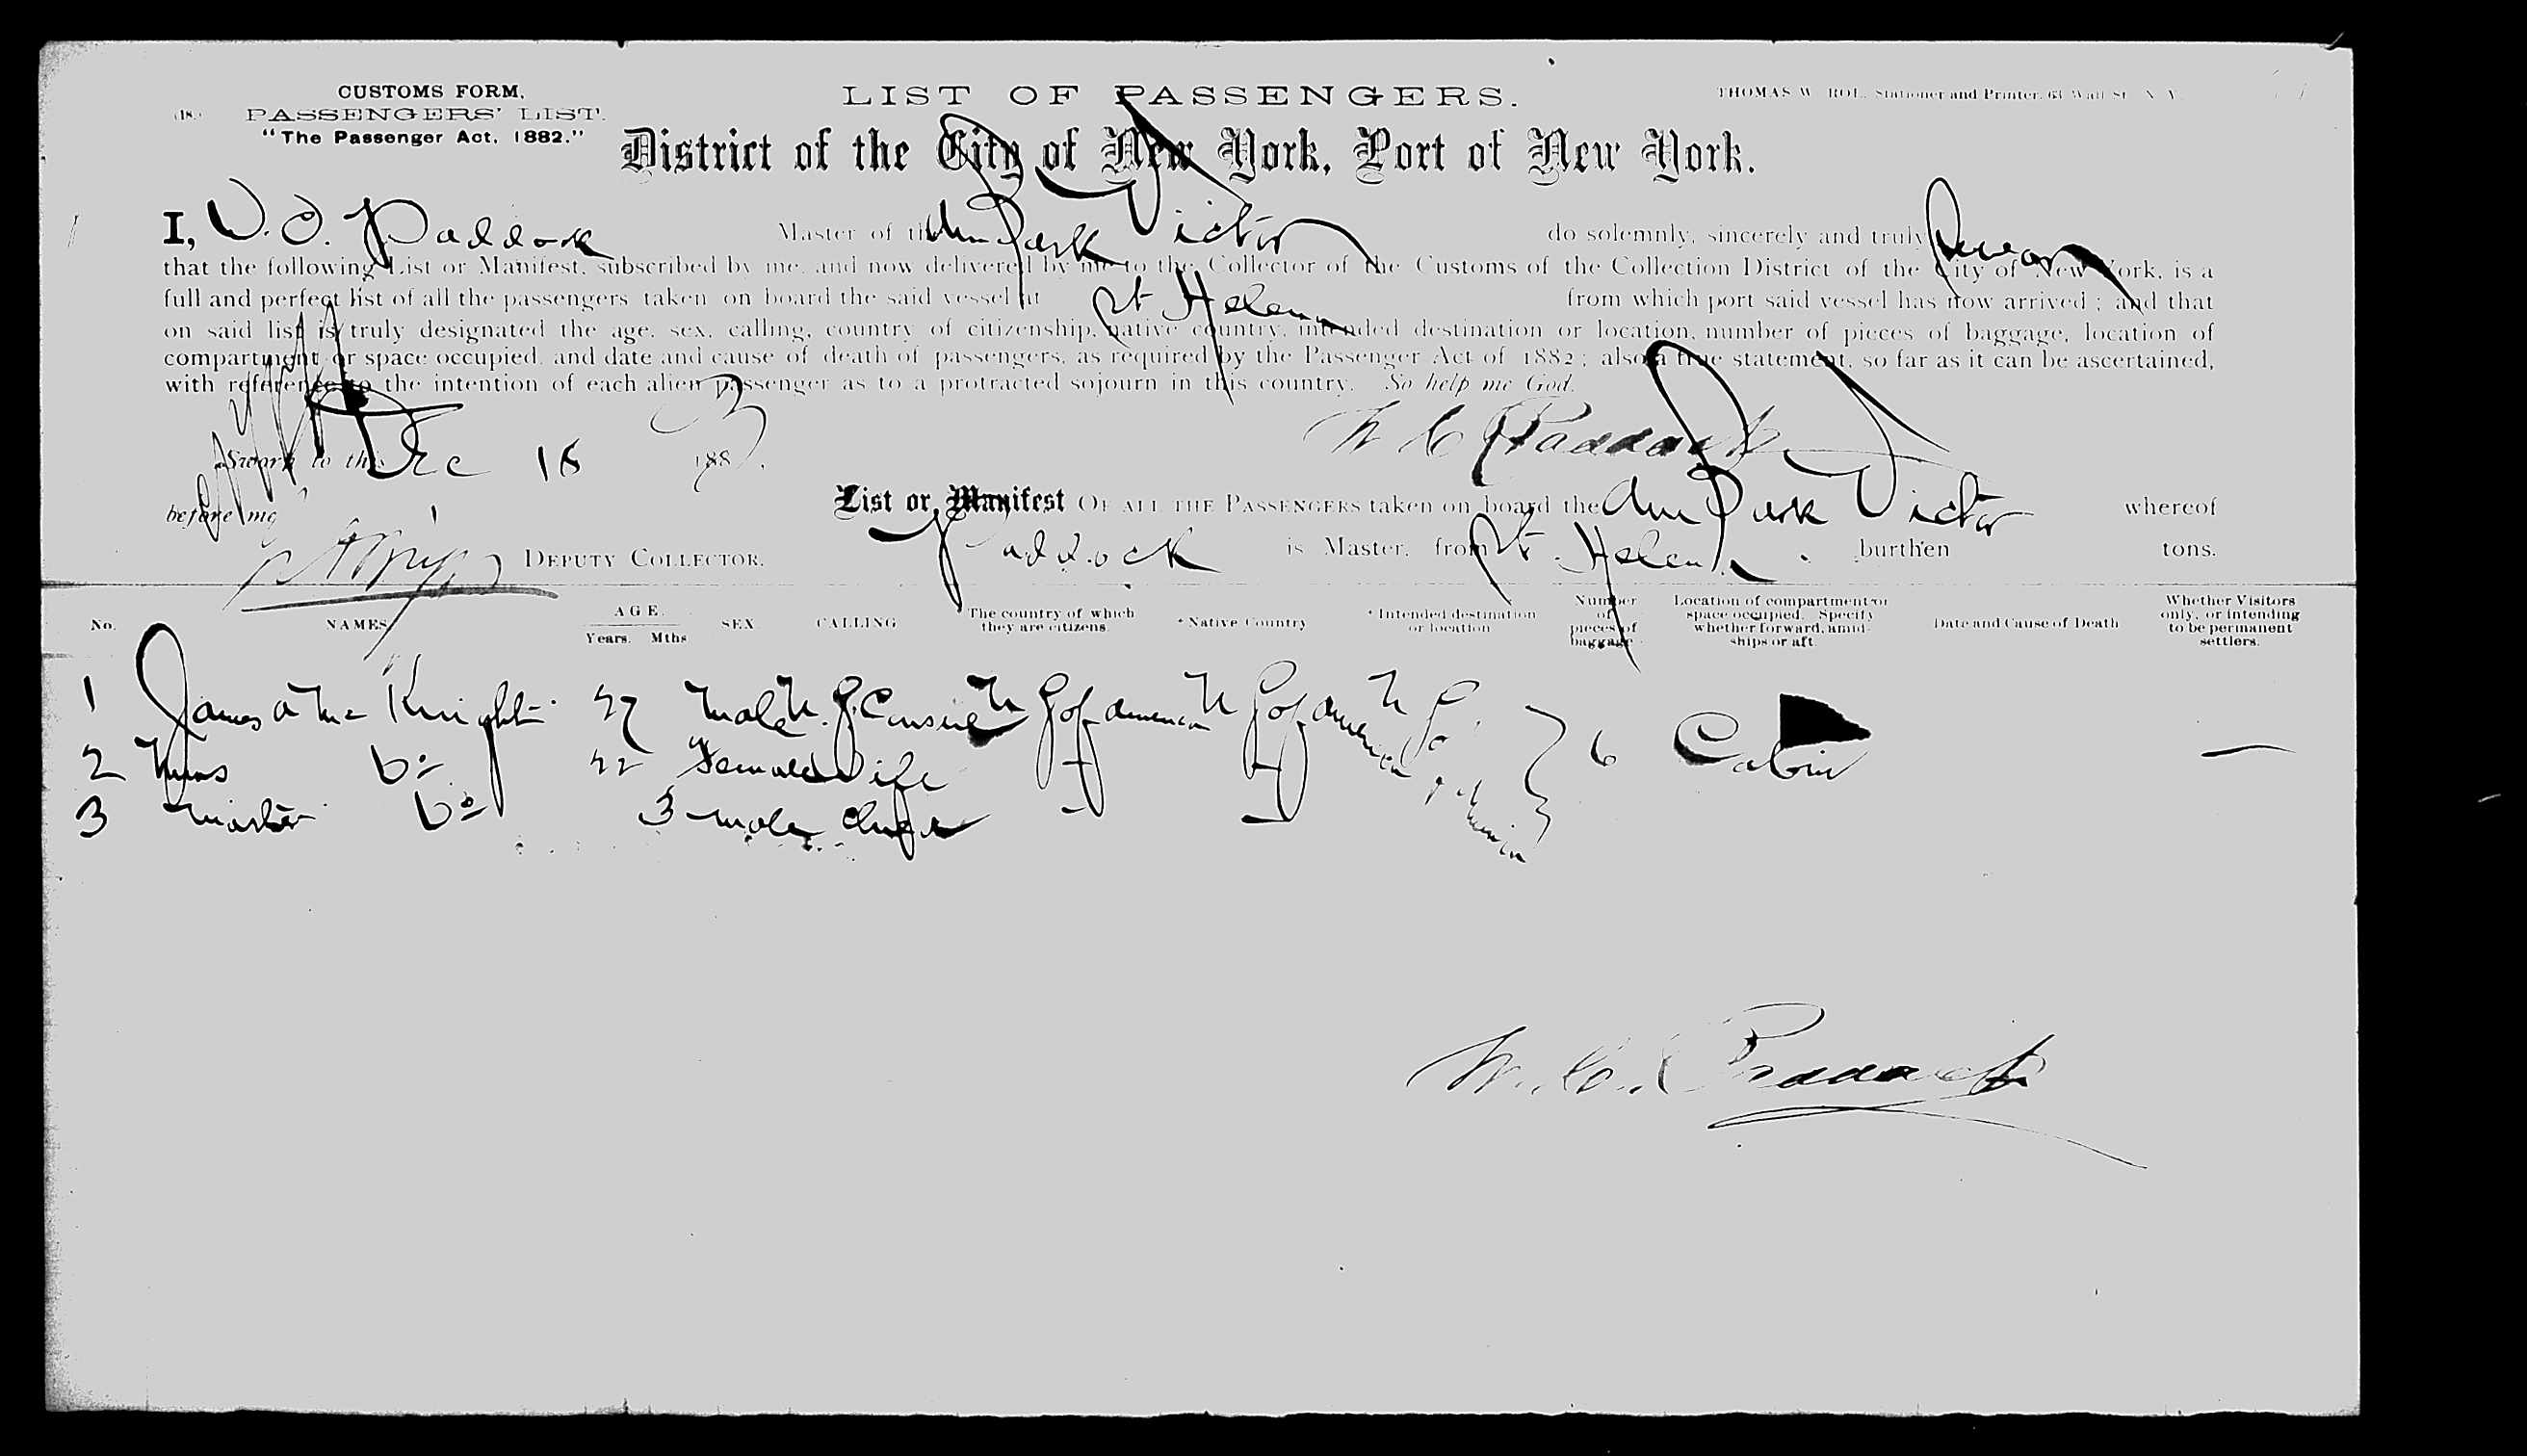 CUSTOMS FORM,
PASSENGERS' LIST.
"The Passenger Act, 1882."
LIST OF PASSENGERS.
THOMAS W. ROE, Stationer and Printer, 63 Wall St. N. Y.
District of the City of New York, Port of New York.
I, W. C. Paddock Master of the Am Bark Victor do solemnly, sincerely and truly Swear
that the following List or Manifest, subscribed by me, and now delivered by me to the Collector of the Customs of the Collection District of the City of New York, is a
full and perfect list of all the passengers taken on board the said vessel at St Helena from which port said vessel has now arrived; and that
on said list is truly designated the age, sex, calling, country of citizenship, native country, intended destination or location, number of pieces of baggage, location of
compartment or space occupied, and date and cause of death of passengers, as required by the Passenger Act of 1882; also a true statement, so far as it can be ascertained,
with reference to the intention of each alien passenger as to a protracted sojourn in this country. So help me God.
W C Paddock
Sworn to this Dec 18 1883.
before me
List or Manifest OF ALL THE PASSENGERS taken on board the Am Bark Victor whereof
DEPUTY COLLECTOR.
Paddock is Master, from St. Helena burthen tons.
No. NAMES AGE. Years. Mths SEX CALLING The country of which they are citizens. *Native Country *Intended destination or location Number of pieces of baggage Location of compartment or space occupied. Specify whether forward, amidships or aft. Date and Cause of Death Whether Visitors only, or intending to be permanent settlers.
1 James a Mc Knight 27 Male U. S. Consul U S of America U S of America U S of America 6 Cabin —
2 Mrs Do 22 Female Wife
3 Master Do 3 male
W. C. Paddock